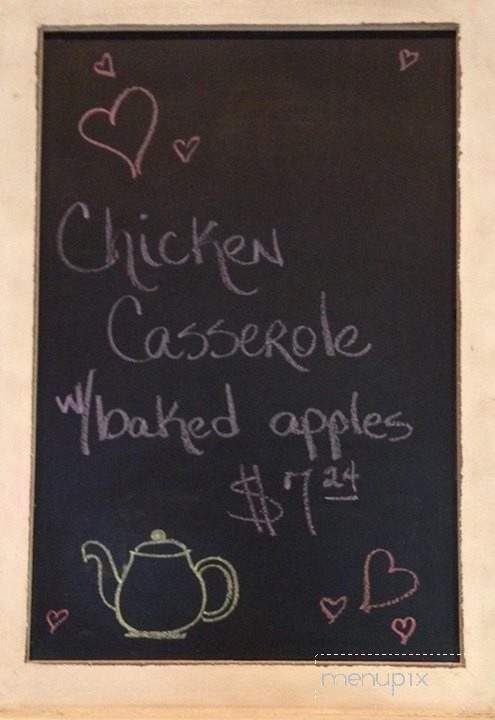 Chicken
Casserole
w/baked apples
$7 24
menupix